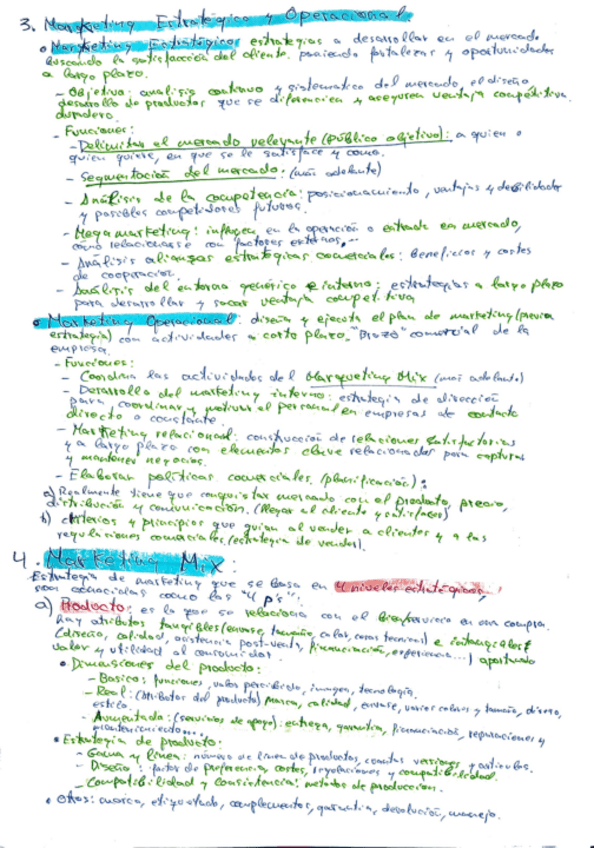 3. Marketing Estratégico y Operacional
• Marketing Estratégico: estrategias a desarrollar en el mercado
buscando la satisfacción del cliente. poniendo fortalezas y oportunidades
a largo plazo.
- Objetivo: analisis continuo y sistematico del mercado, el diseño
desarrollo de productos que se diferencien y aseguren ventaja competitiva
duradero.
- Funciones:
- Delimitar el mercado relevante (público objetivo): a quien o
quien quiere, en que se le satisface y como.
- Segmentación del mercado: (más adelante)
- Análisis de la competencia: posicionamiento, ventajas y debilidades
y posibles competidores futuros.
- Megamarketing: influyen en la operación o entrada en mercado,
cómo relacionarse con factores externos...
- Análisis alianzas estratégicas comerciales: Beneficios y costes
de cooperación.
- Análisis del entorno genérico e interno: estrategias a largo plazo
para desarrollar y sacar ventaja competitiva
• Marketing Operacional: diseña y ejecuta el plan de marketing (previa
estrategia) con actividades a corto plazo. "Brazo" comercial de la
empresa.
- Funciones:
- Coordina las actividades del Marqueting Mix (más adelante)
- Desarrollo del marketing interno: estrategia de dirección
para coordinar y motivar el personal en empresas de contacto
directo o constante.
- Marketing relacional: construcción de relaciones satisfactorias
y a largo plazo con elementos clave relacionados para capturar
y mantener negocios.
- Elaborar políticas comerciales. (planificación):
a) Realmente tiene que conquistar mercado con el producto, precio,
distribución y comunicación. (llegar al cliente y satisfacer)
b) criterios y principios que guían al vender a clientes y a las
regulaciones comerciales. (estrategia de vender).
4. Marketing Mix:
Estrategia de marketing que se basa en 4 niveles estratégicos,
son conocidas como las "4 p's":
a) Producto: es lo que se relaciona con el bien/servicio en una compra.
hay atributos tangibles (envase, tamaño, color, ...) e intangibles (
(diseño, calidad, asistencia post-venta, financiación, experiencia...) aportando
valor y utilidad al consumidor
• Dimensiones del producto:
- Basico: funciones, valor percibido, imagen, tecnología.
- Real: (Atributos del producto) Marca, calidad, envase, varios colores y tamaño, diseño,
estilo.
- Aumentada: (servicios de apoyo): entrega, garantía, financiación, reparaciones y
mantenimiento...
• Estrategia de producto:
- Gama y línea: número de línea de productos, cuantas versiones y artículos.
- Diseño: factor de preferencia, costes, regulaciones y compatibilidad.
- Compatibilidad y consistencia: métodos de producción.
• Otros: marca, etiquetado, complementos, garantía, devolución, manejo.